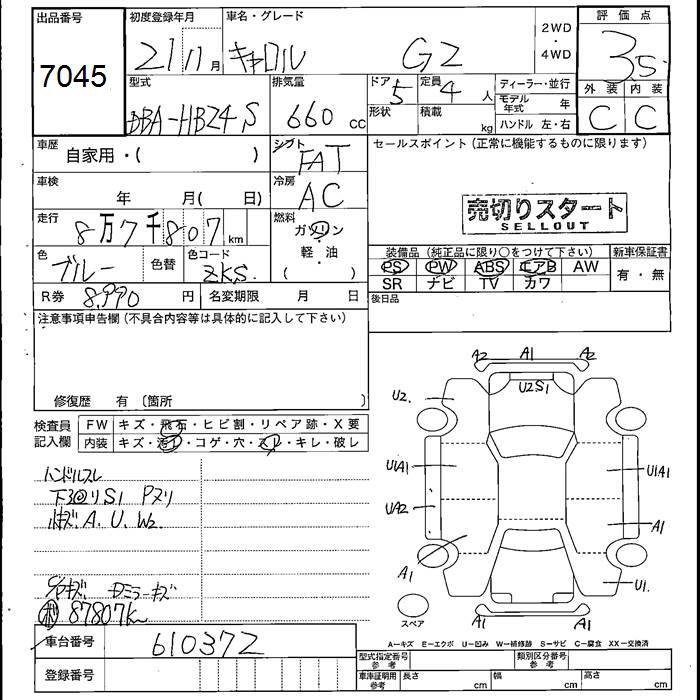 出品番号
7045
初度登録年月
21 11 月
車名・グレード
キャロル G2
2WD
・
4WD
評価点
3.5
型式
DBA-HB24S
排気量
660 cc
ドア
5
形状
定員
4 人
積載
kg
ディーラー・並行
モデル年式 年
ハンドル 左・右
外装 内装
C C
車歴
自家用・( )
シフト
FAT
車検
年 月( 日)
冷房
AC
走行
8万7千807 km
燃料
ガソリン
・
軽・油
( )
色
ブルー
色替
色コード
ZKS
R券 8,990 円
名変期限 月 日
セールスポイント(正常に機能するものに限ります)
売切りスタート
SELLOUT
装備品(純正品に限り○をつけて下さい)
新車保証書
PS PW ABS エアB AW
SR ナビ TV カワ
有・無
後日品
注意事項申告欄(不具合内容等は具体的に記入して下さい)
修復歴 有〔箇所 〕
検査員記入欄
FW キズ・飛石・ヒビ割・リペア跡・X要
内装 キズ・汚れ・コゲ・穴・スレ・キレ・破レ
ハンドルスレ
下3回りS1 Pズリ
小キズ. A. U. W2
87807km
車台番号 610372
登録番号
A2 A1 A2
U2S1
U2.
U1A1
U1A1
UA2
A1
A1
U1.
A1 A1
スペア
A-キズ E-エクボ U-凹み W-補修跡 S-サビ C-腐食 XX-交換済
型式指定番号 参考
類別区分番号 参考
車庫証明用 参考
長さ cm
幅 cm
高さ cm